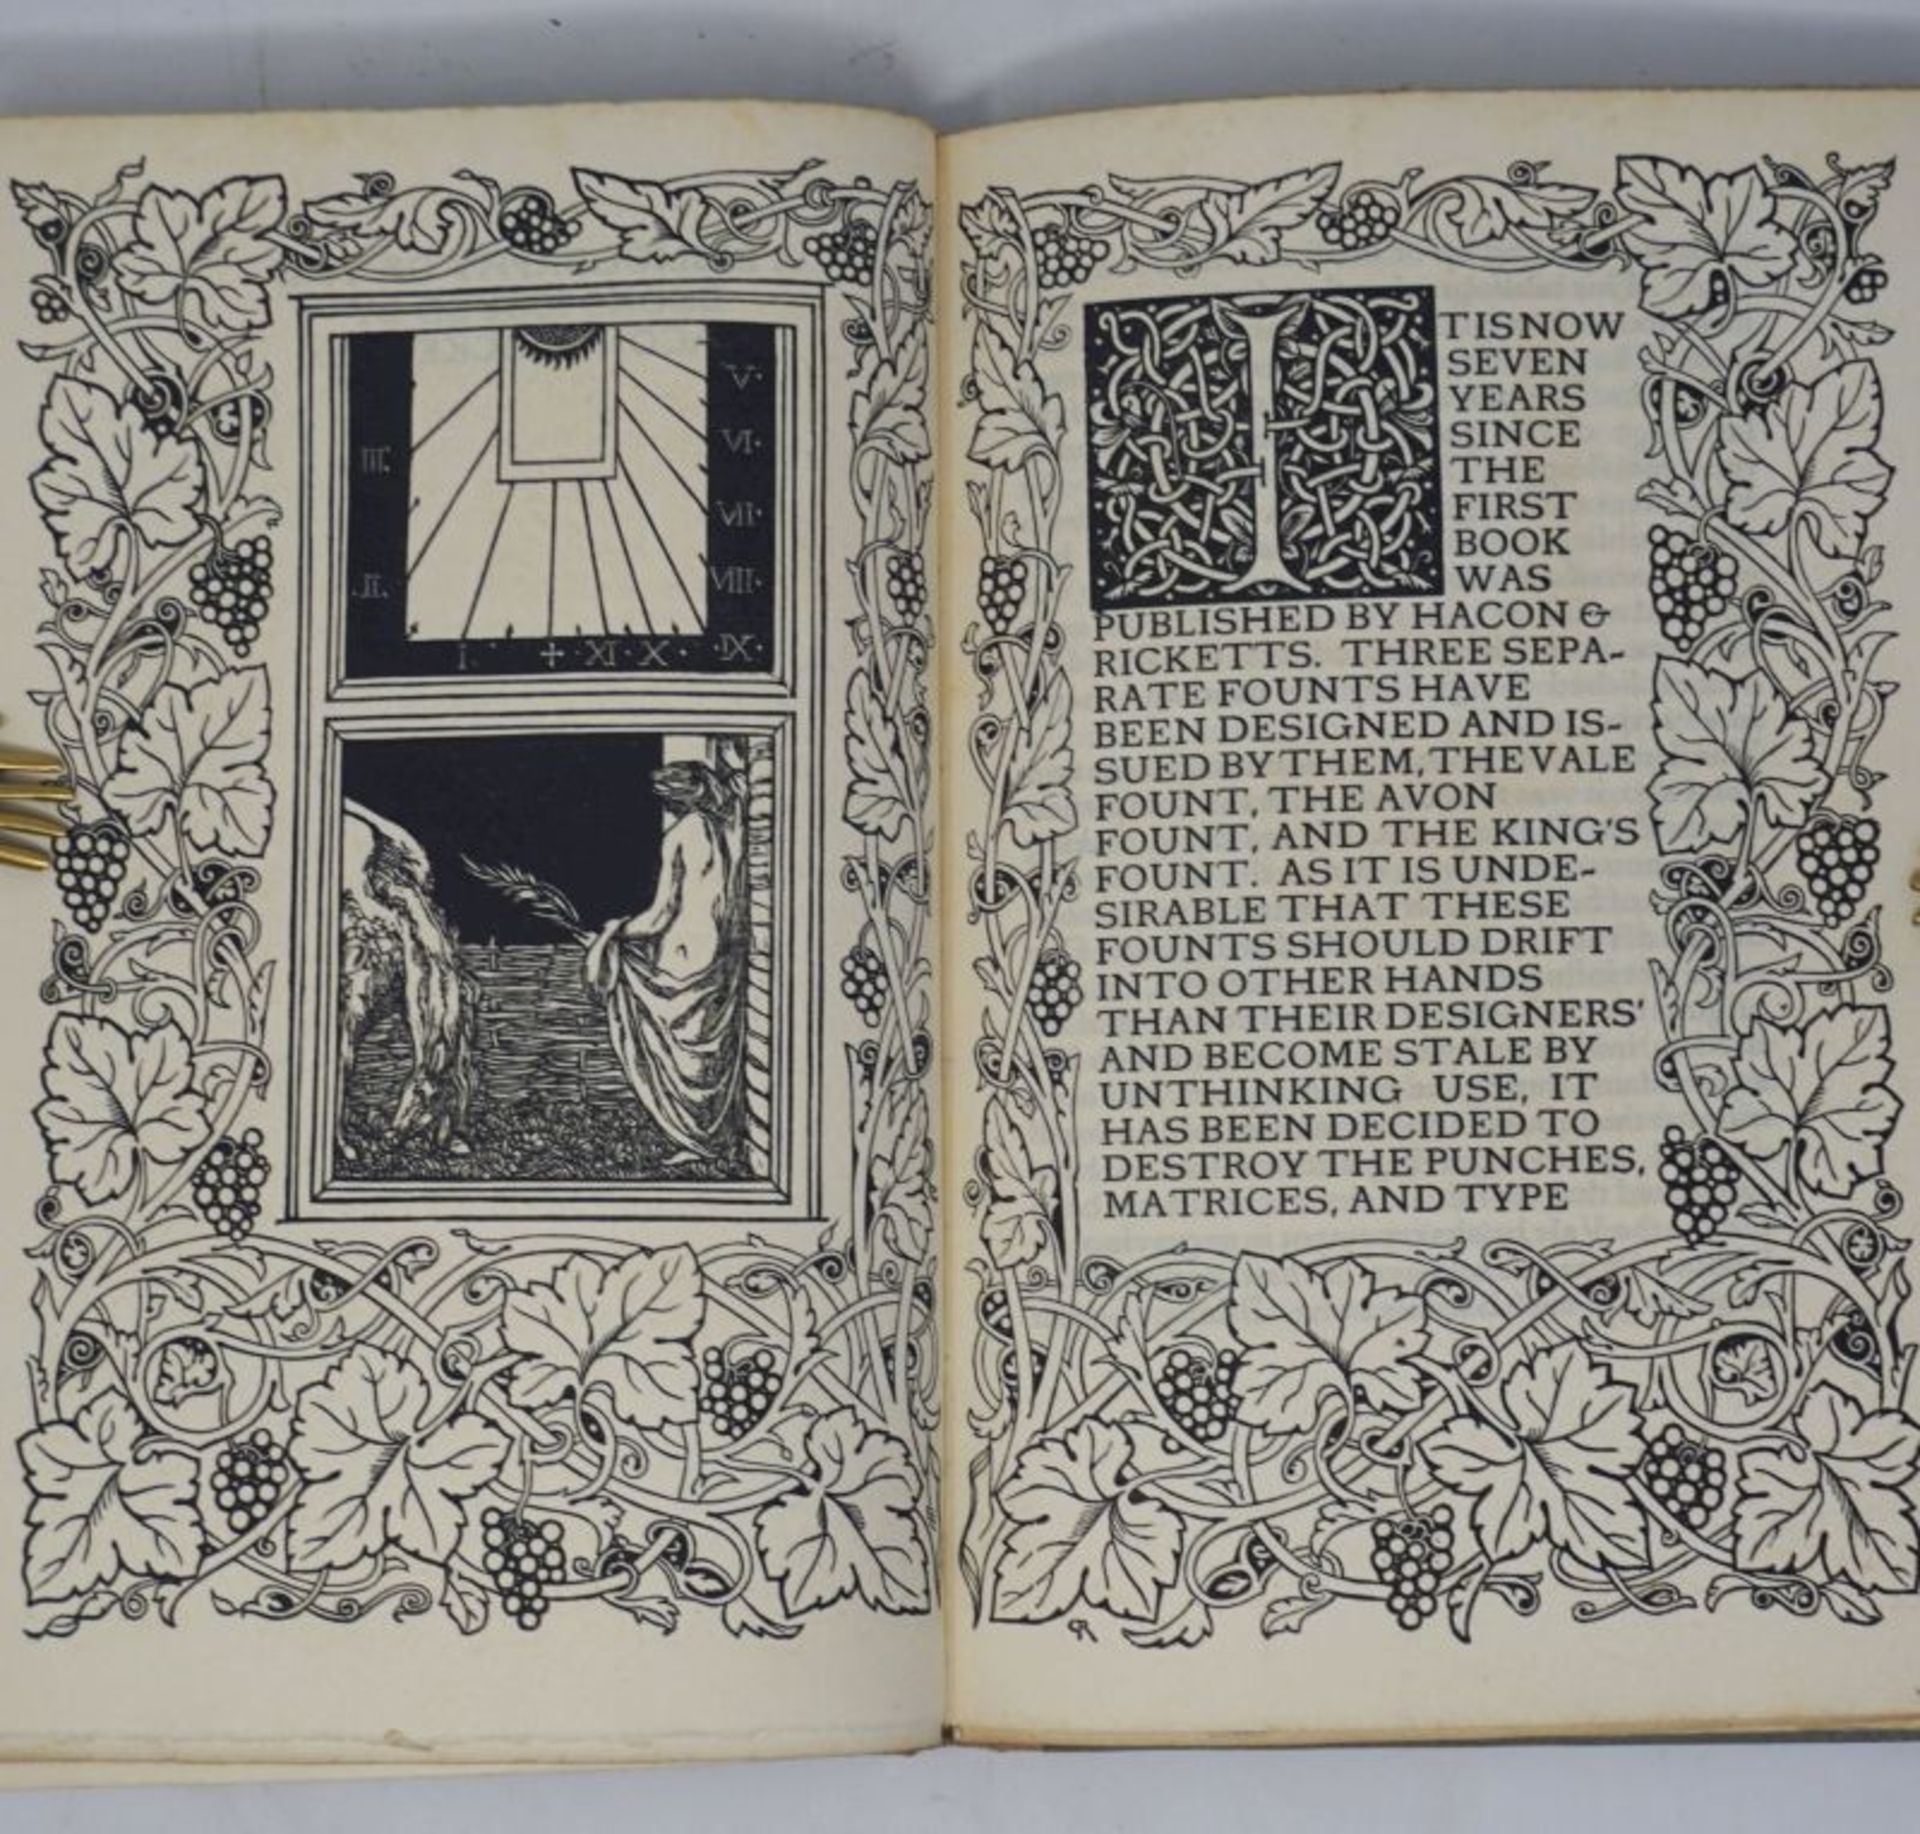 V·
VI·
VII·
VIII·
IX·
III.
.II.
I. + ·XI· X ·
IT IS NOW
SEVEN
YEARS
SINCE
THE
FIRST
BOOK
WAS
PUBLISHED BY HACON &
RICKETTS. THREE SEPA-
RATE FOUNTS HAVE
BEEN DESIGNED AND IS-
SUED BY THEM, THE VALE
FOUNT, THE AVON
FOUNT, AND THE KING'S
FOUNT. AS IT IS UNDE-
SIRABLE THAT THESE
FOUNTS SHOULD DRIFT
INTO OTHER HANDS
THAN THEIR DESIGNERS'
AND BECOME STALE BY
UNTHINKING USE, IT
HAS BEEN DECIDED TO
DESTROY THE PUNCHES,
MATRICES, AND TYPE
CR